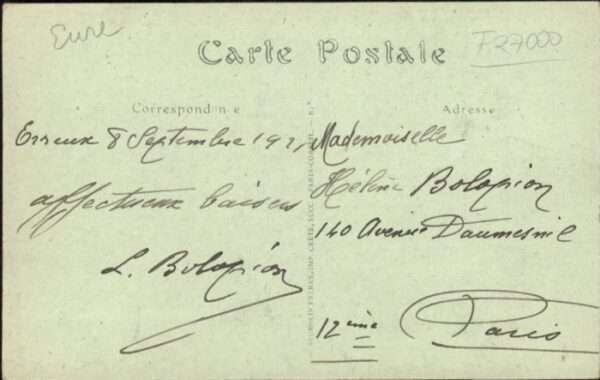 Eure
F27000
Carte Postale
Correspondance
Adresse
Evreux 8 Septembre 192
affectueux baisers
L. Bolopion
Mademoiselle
Hélène Bolopion
140 Avenue Daumesnil
12ème
Paris